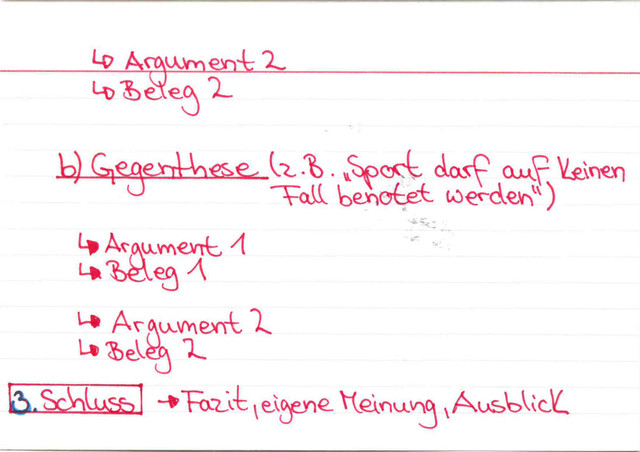 ↳ Argument 2
↳ Beleg 2
b) Gegenthese (z.B. „Sport darf auf keinen
Fall benotet werden“)
↳ Argument 1
↳ Beleg 1
↳ Argument 2
↳ Beleg 2
3. Schluss → Fazit, eigene Meinung, Ausblick